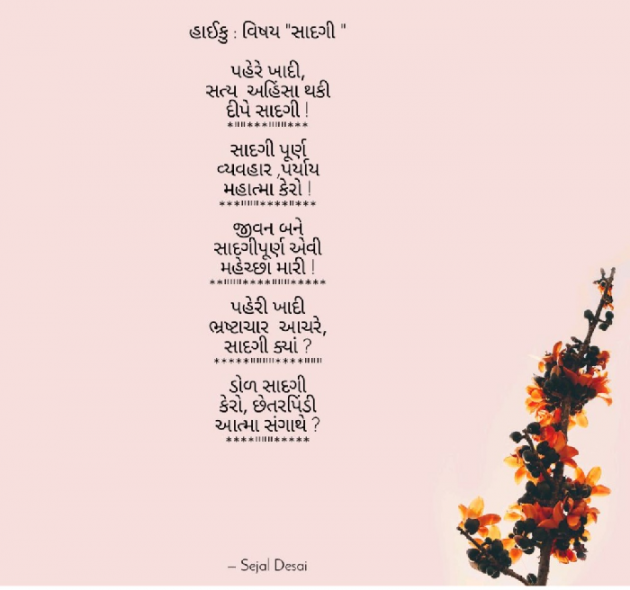 હાઈકુ : વિષય "સાદગી "
પહેરે ખાદી,
સત્ય અહિંસા થકી
દીપે સાદગી !
*"""***"""***
સાદગી પૂર્ણ
વ્યવહાર ,પર્યાય
મહાત્મા કેરો !
***""""****"***
જીવન બને
સાદગીપૂર્ણ એવી
મહેચ્છા મારી !
**"""****"""*****
પહેરી ખાદી
ભ્રષ્ટાચાર આચરે,
સાદગી ક્યાં ?
*****"""""****"""
ડોળ સાદગી
કેરો, છેતરપિંડી
આત્મા સંગાથે ?
****"""*****
– Sejal Desai